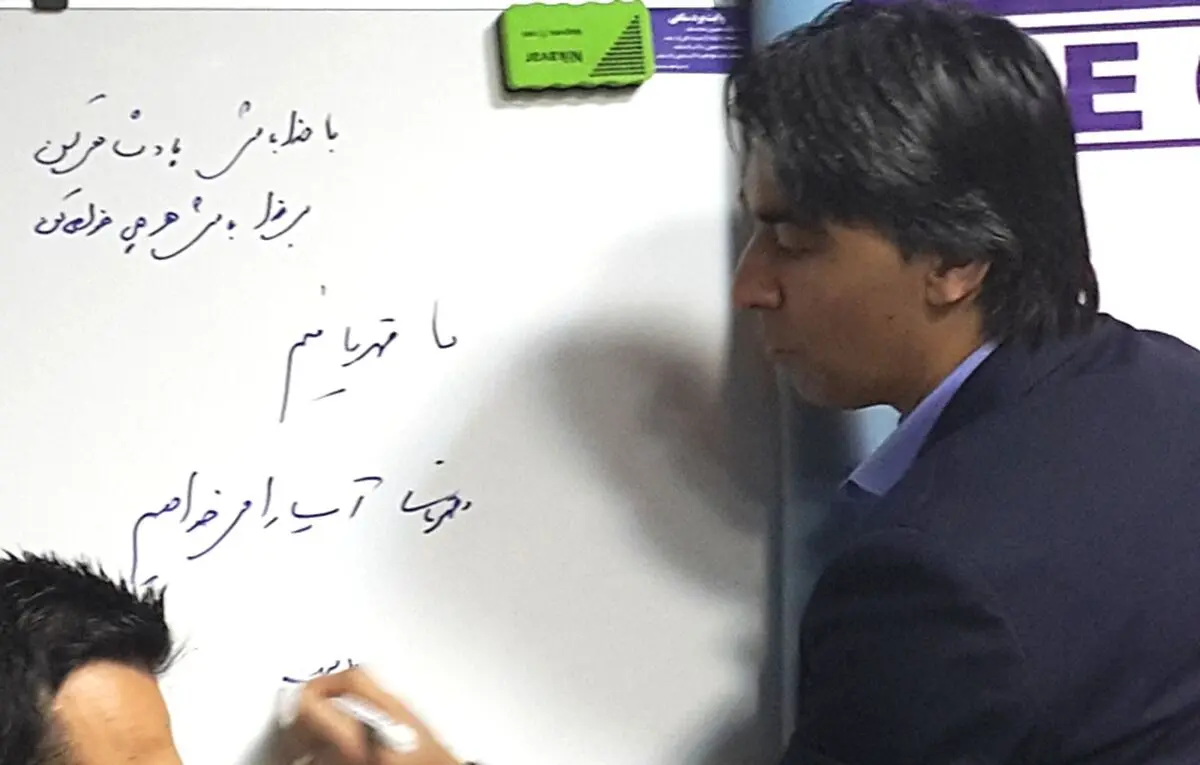 با خدا باش پادشاهی کن
بی خدا باش هر چی خواهی کن
ما قهرمانیم
قهرمانی آسیا را می خواهیم
E